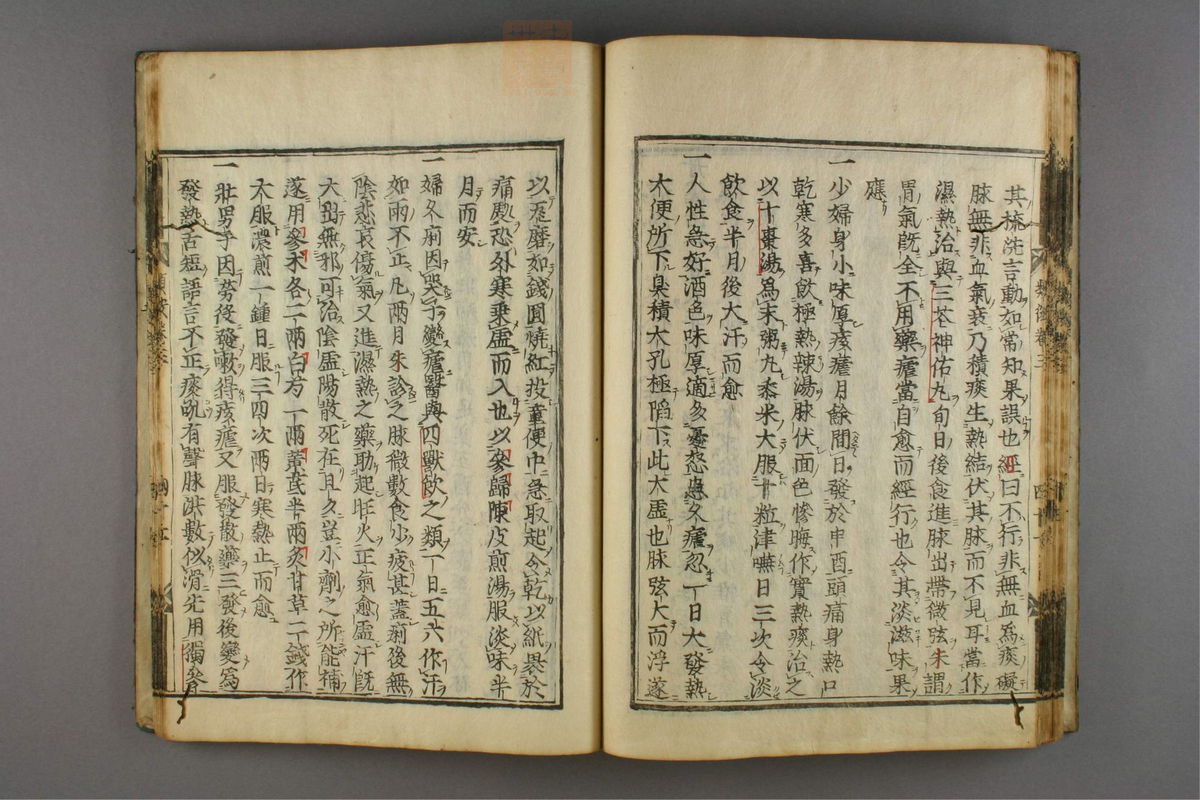 其梳洗言動如常知果誤也經曰不行非無血爲痰礙
脉無非血氣衰乃積痰生熱結伏其脉而不見耳當作
濕熱治與三花神佑丸旬日後食進脉出帶微弦朱謂
胃氣既全不用藥瘧當自愈而經行也令其淡滋味果
應
一少婦身小味厚痰瘧月餘間日發於申酉頭痛身熱口
乾寒多喜飲極熱辣湯脉伏面色慘晦作實熱痰治之
以十棗湯爲末粥丸黍米大服十粒津嚥日三次令淡
飲食半月後大汗而愈
一人性急好酒色味厚適多憂怒患久瘧忽一日大發熱
大便所下臭積大孔極陷下此大虚也脉弦大而浮遂
以瓦磨如錢圓燒紅投童便中急取起令乾以紙裹於
痛處恐外寒乗虚而入也以參歸陳皮煎湯服淡味半
月而安
一婦久痢因哭子變瘧醫與四獸飲之類一日五六作汗
如雨不止凡兩月朱診之脉微數食少疲甚蓋痢後無
陰悲哀傷氣又進濕熱之藥助起旺火正氣愈虚汗既
大出無邪可治陰虚陽散死在旦夕豈小劑之所能補
遂用參朮各二兩白芍一兩黃芪半兩炙甘草二錢作
大服濃煎一鍾日服三四次兩日寒熱止而愈
一壯男子因勞役發嗽得痎瘧又服發散藥三發後變爲
發熱舌短語言不正痰吼有聲脉洪數似滑先用獨參